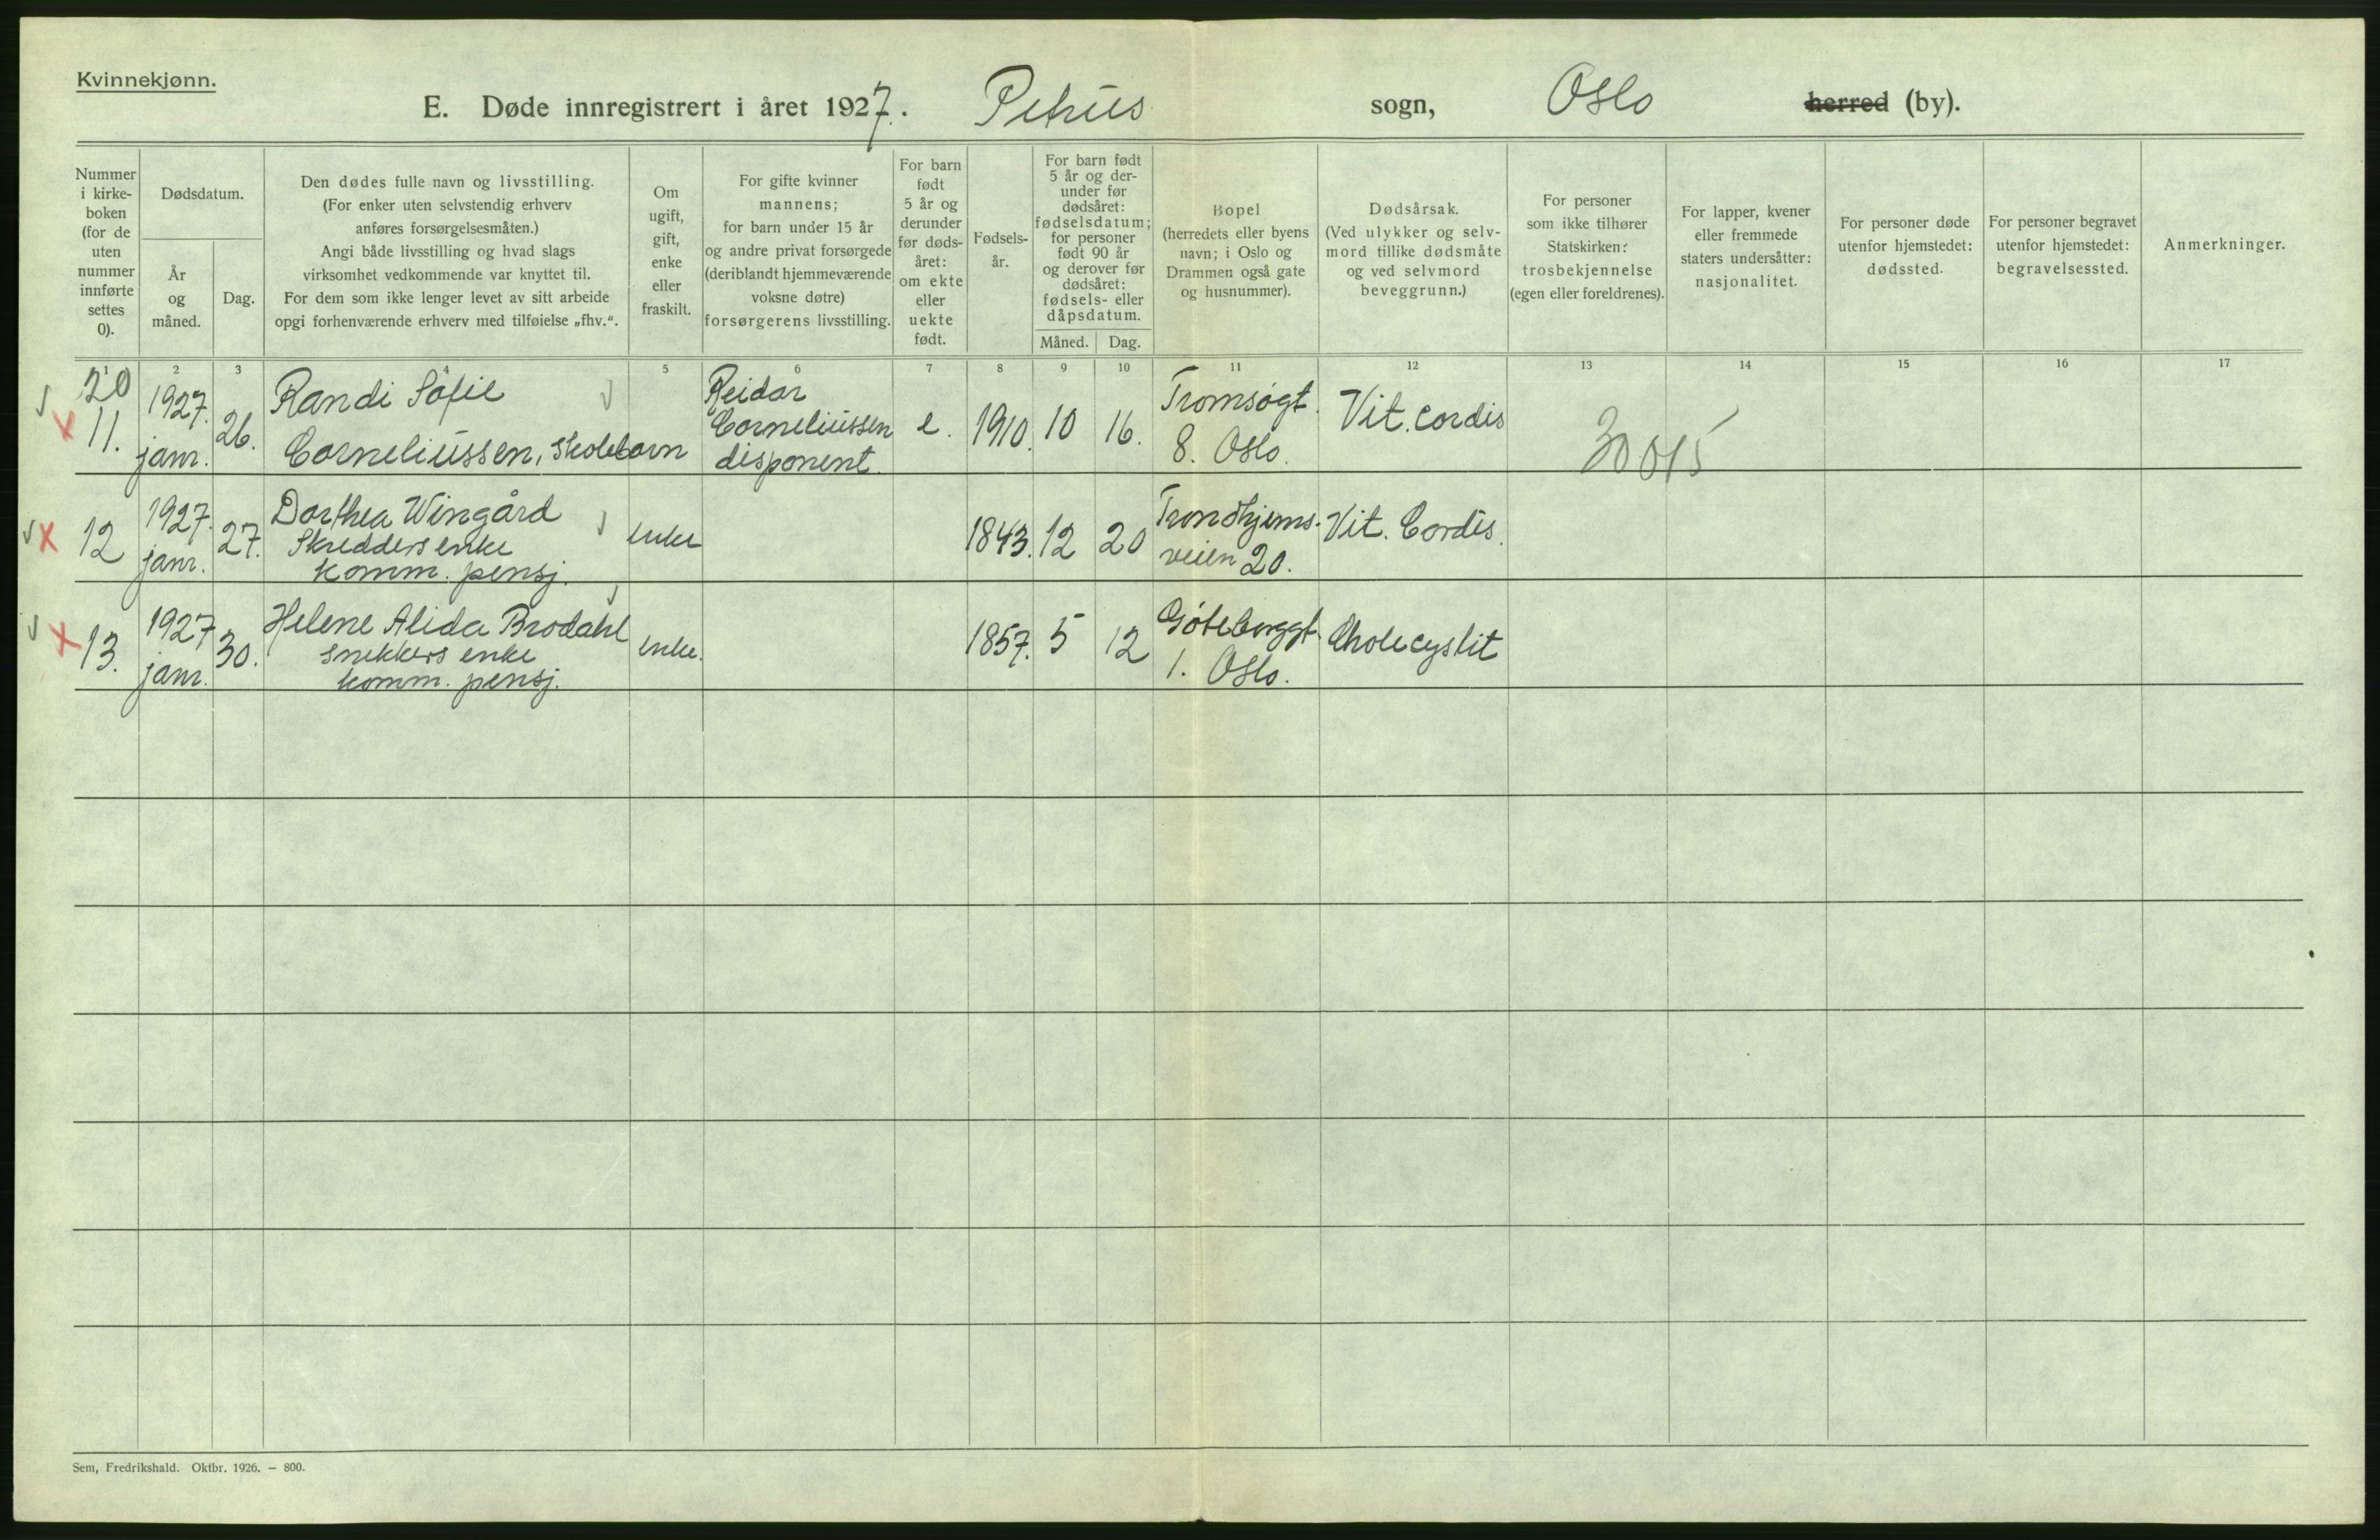 Kvinnekjønn.
E. Døde innregistrert i året 1927. Petrus sogn, Oslo herred (by).
Nummer i kirke-boken (for de uten nummer innførte settes 0).
Dødsdatum.
År og måned.
Dag.
Den dødes fulle navn og livsstilling.
(For enker uten selvstendig erhverv
anføres forsørgelsesmåten.)
Angi både livsstilling og hvad slags
virksomhet vedkommende var knyttet til.
For dem som ikke lenger levet av sitt arbeide
opgi forhenværende erhverv med tilføielse „fhv.“.
Om ugift, gift, enke eller fraskilt.
For gifte kvinner
mannens;
for barn under 15 år
og andre privat forsørgede
(deriblandt hjemmeværende
voksne døtre)
forsørgerens livsstilling.
For barn født 5 år og derunder før døds-året: om ekte eller uekte født.
Fødsels-år.
For barn født
5 år og der-
under før
dødsåret:
fødselsdatum;
for personer
født 90 år
og derover før
dødsåret:
fødsels- eller
dåpsdatum.
Måned. Dag.
Bopel
(herredets eller byens
navn; i Oslo og
Drammen også gate
og husnummer).
Dødsårsak.
(Ved ulykker og selv-
mord tillike dødsmåte
og ved selvmord
beveggrunn.)
For personer
som ikke tilhører
Statskirken:
trosbekjennelse
(egen eller foreldrenes).
For lapper, kvener
eller fremmede
staters undersåtter:
nasjonalitet.
For personer døde
utenfor hjemstedet:
dødssted.
For personer begravet
utenfor hjemstedet:
begravelsessted.
Anmerkninger.
1 2 3 4 5 6 7 8 9 10 11 12 13 14 15 16 17
20
11. 1927. janr. 26. Randi Sofie Corneliussen, skolebarn Reidar Corneliussen disponent. e. 1910. 10 16. Tromsøgt. 8. Oslo. Vit. cordis 30015
12 1927. janr. 27. Dorthea Wingård Skredders enke komm. pensj. enke 1843. 12 20 Trondhjems-veien 20. Vit. Cordis.
13. 1927 janr. 30. Helene Alida Brodahl snekkers enke komm. pensj. enke. 1857. 5 12 Gøteborggt. 1. Oslo. Cholecystit
Sem, Fredrikshald. Oktbr. 1926. — 800.